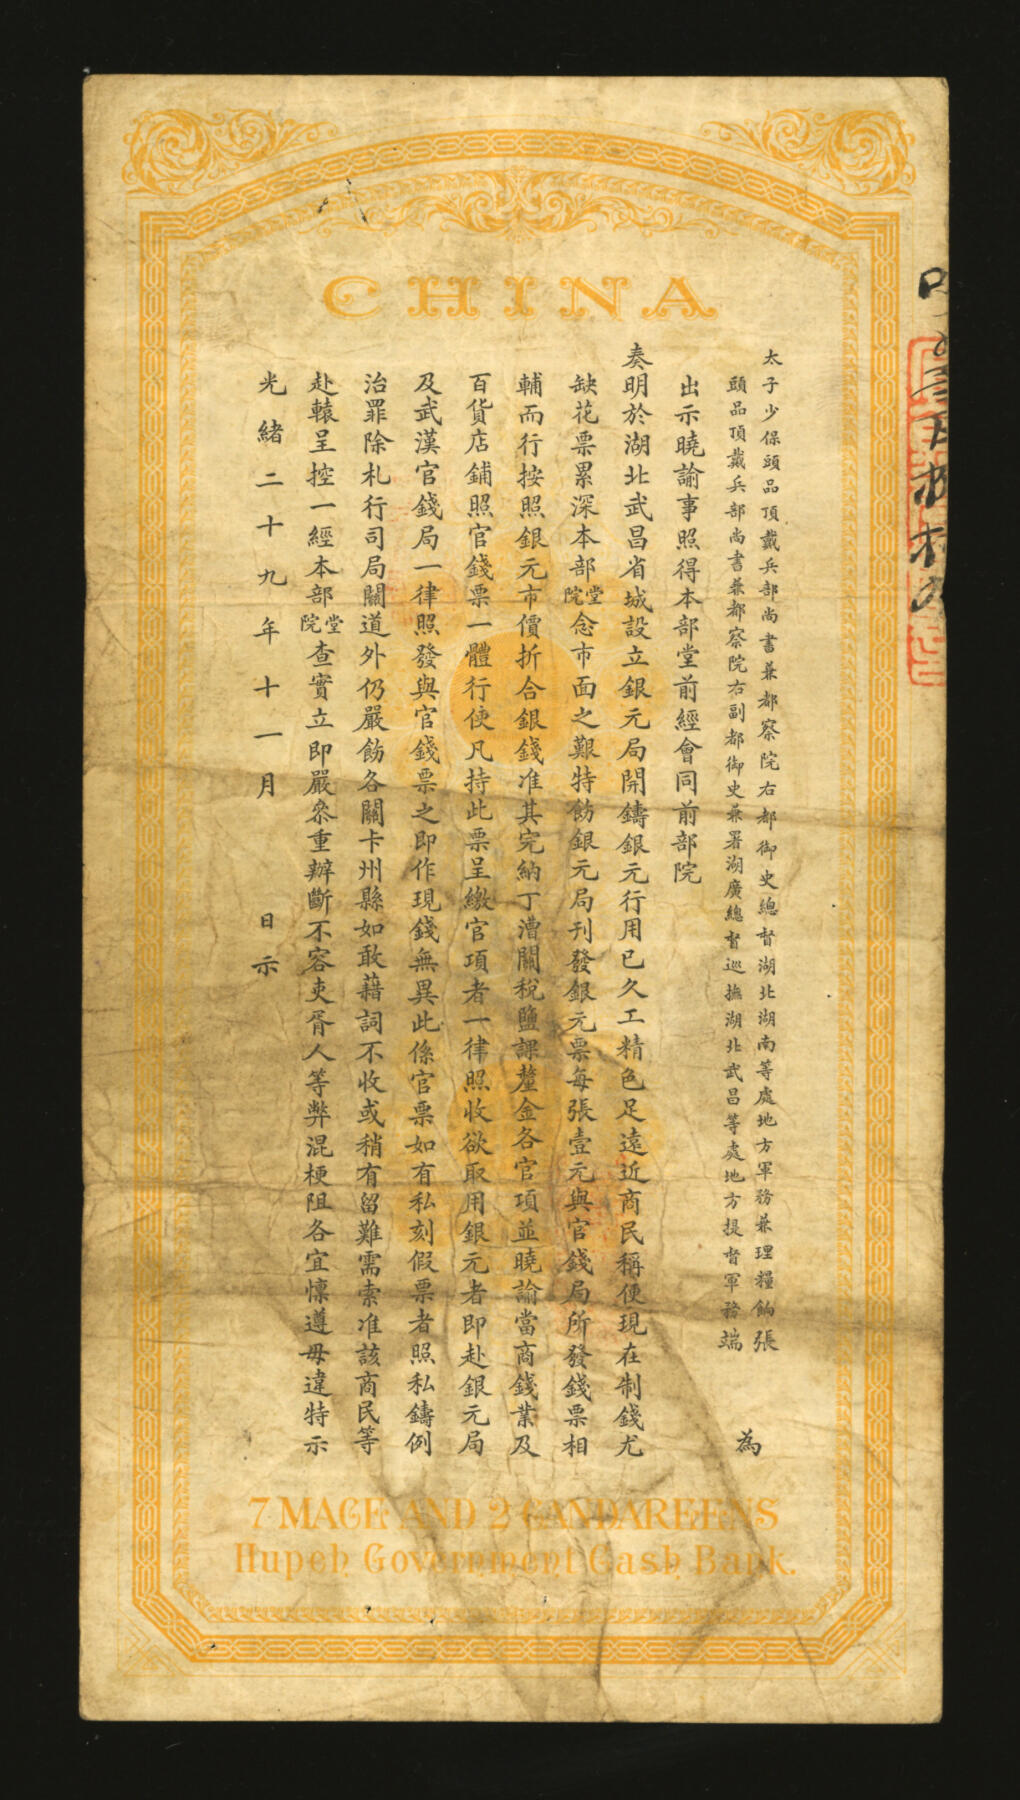 CHINA
太子少保頭品頂戴兵部尚書兼都察院右都御史總督湖北湖南等處地方軍務兼理糧餉張
頭品頂戴兵部尚書兼都察院右副都御史兼署湖廣總督巡撫湖北武昌等處地方提督軍務端
為
出示曉諭事照得本部堂前經會同前部院
奏明於湖北武昌省城設立銀元局開鑄銀元行用已久工精色足遠近商民稱便現在制錢尤
缺花票累深本部堂院念市面之艱特飭銀元局刊發銀元票每張壹元與官錢局所發錢票相
輔而行按照銀元市價折合銀錢准其完納丁漕關稅鹽課釐金各官項並曉諭當商錢業及
百貨店鋪照官錢票一體行使凡持此票呈繳官項者一律照收欲取用銀元者即赴銀元局
及武漢官錢局一律照發與官錢票之即作現錢無異此係官票如有私刻假票者照私鑄例
治罪除札行司局關道外仍嚴飭各關卡州縣如敢藉詞不收或稍有留難需索准該商民等
赴轅呈控一經本部堂院查實立即嚴叅重辦斷不容吏胥人等弊混梗阻各宜懍遵毋違特示
光緒二十九年十一月 日示
7 MACE AND 2 CANDAREENS
Hupeh Government Cash Bank.